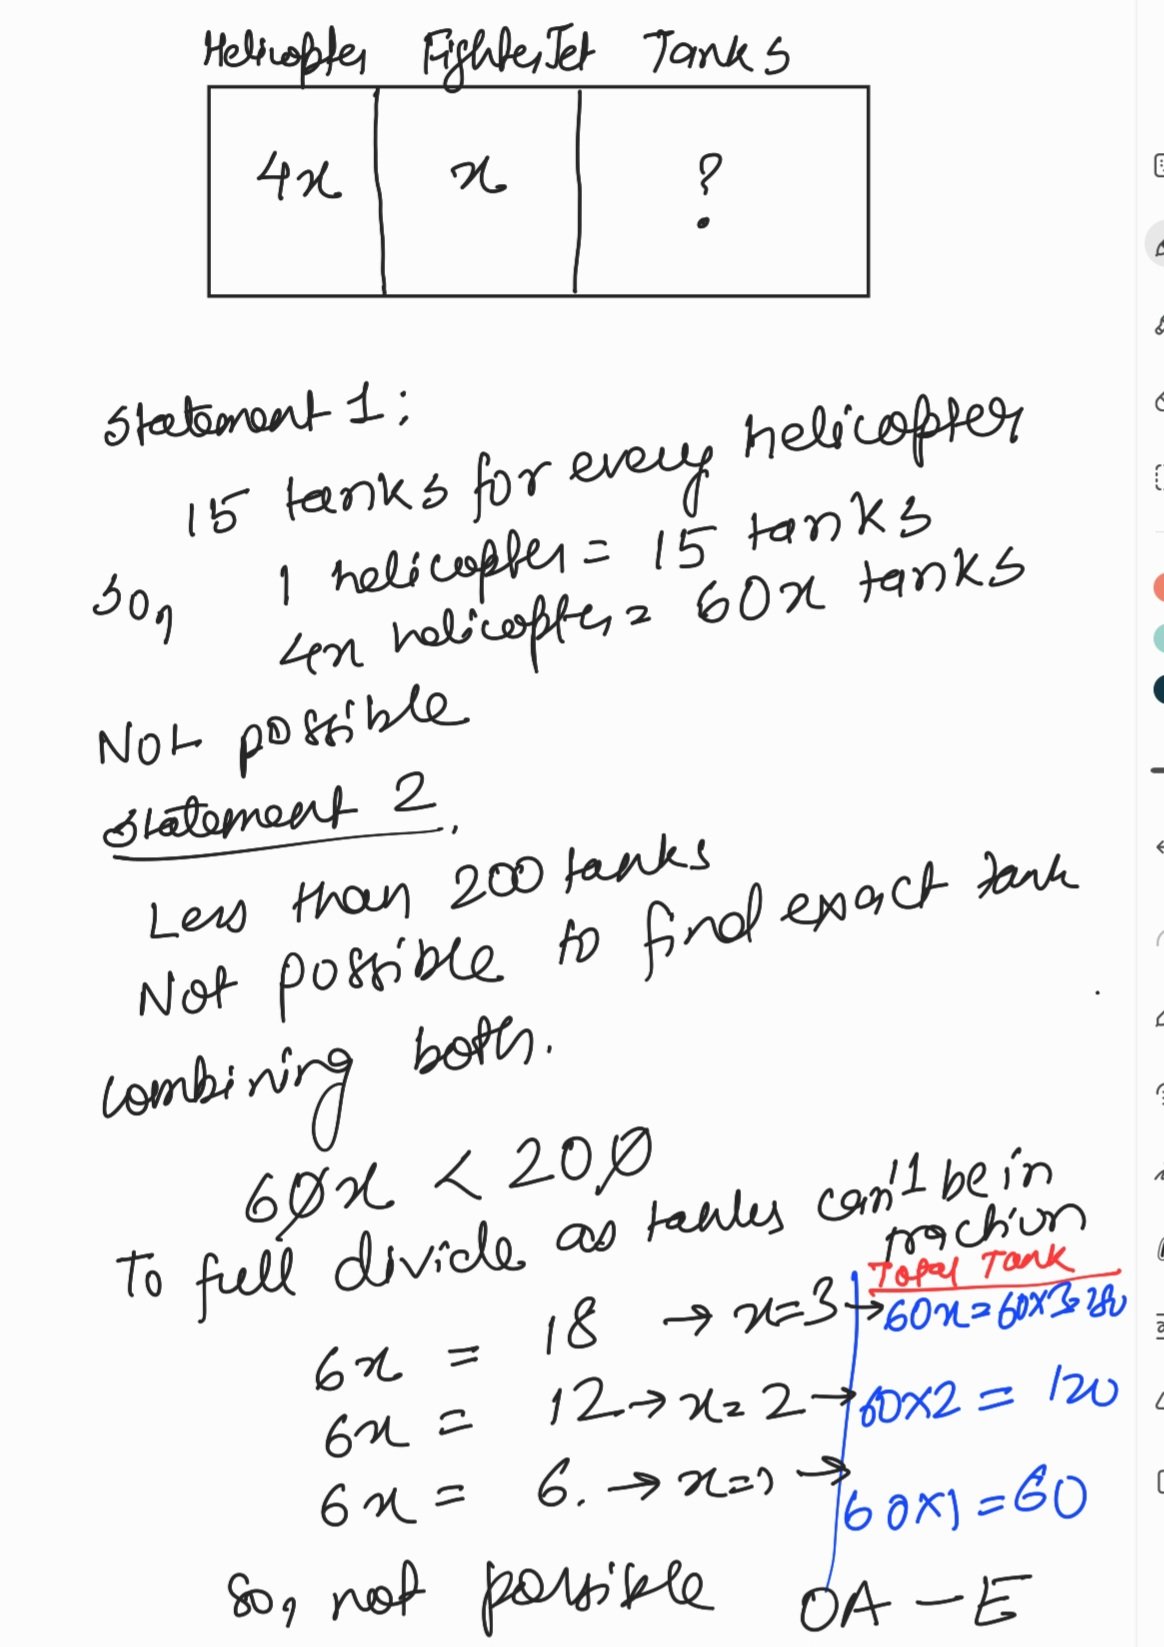 Helicopter Fighter Jet Tanks
4x x ?
Statement 1:
15 tanks for every helicopter
So, 1 helicopter = 15 tanks
4x helicopter = 60x tanks
Not possible
Statement 2.
Less than 200 tanks
Not possible to find exact tank
combining both.
60x < 200
To full divide as tanks can't be in
fraction
Total Tank
6x = 18 → x=3 → 60x = 60x3=180
6x = 12 → x = 2 → 60x2 = 120
6x = 6. → x=1 →
60x1 = 60
So, not possible OA - E